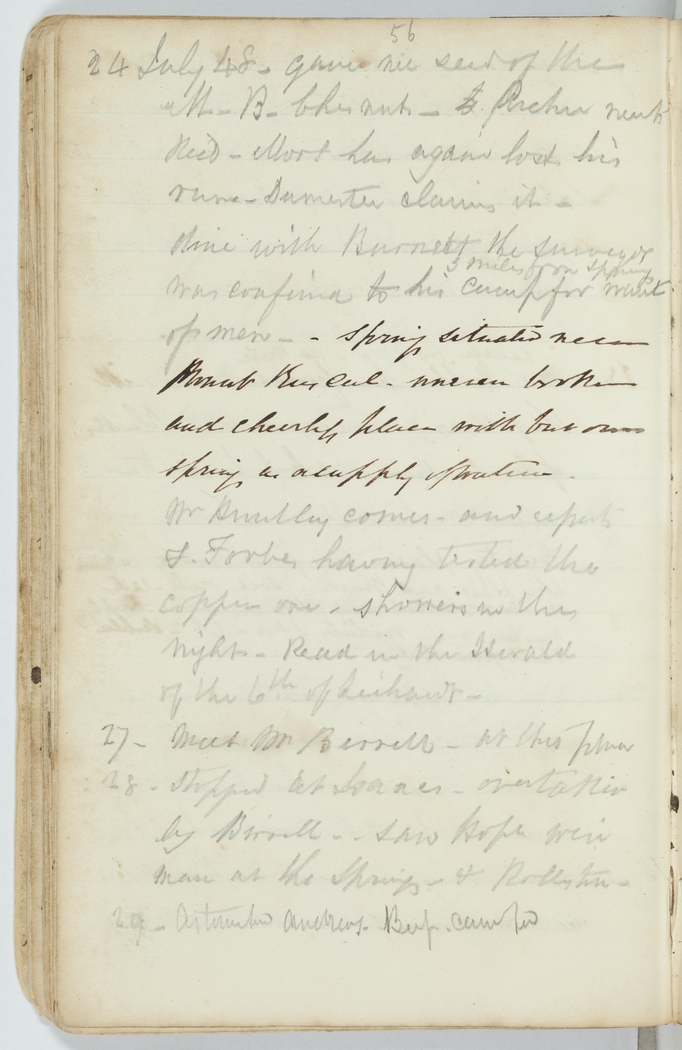 56
24 July 48 - gave me seed of the
B - Chesnuts - Archer went
Reid - Mort has again lost his
run - Dumester claims it -
dine with Burnett the surveyor
3 miles from Spring
was confined to his camp for want
of men - - Spring situated near
Mount - uneven broken
and cheerless place with but one
spring as a supply of water -
Mr Huntley comes - and reports
S. Forbes having tested the
copper ore - showers in the
night - Read in the Herald
of the 6th of Leichardt -
27 - Meet Mr Birrell - at this place
28 - stopped at Isaacs - overtaken
by Birrell - - saw Hope
man at the Springs - &
29 - Andrews - camped